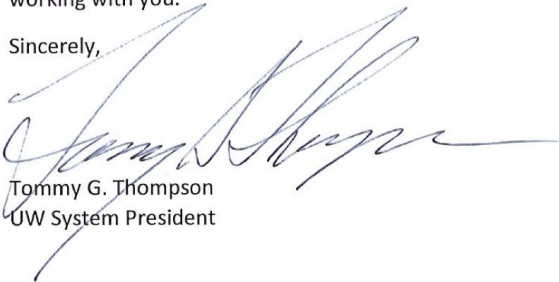 working with you.
Sincerely,
Tommy G. Thompson
Tommy G. Thompson
UW System President